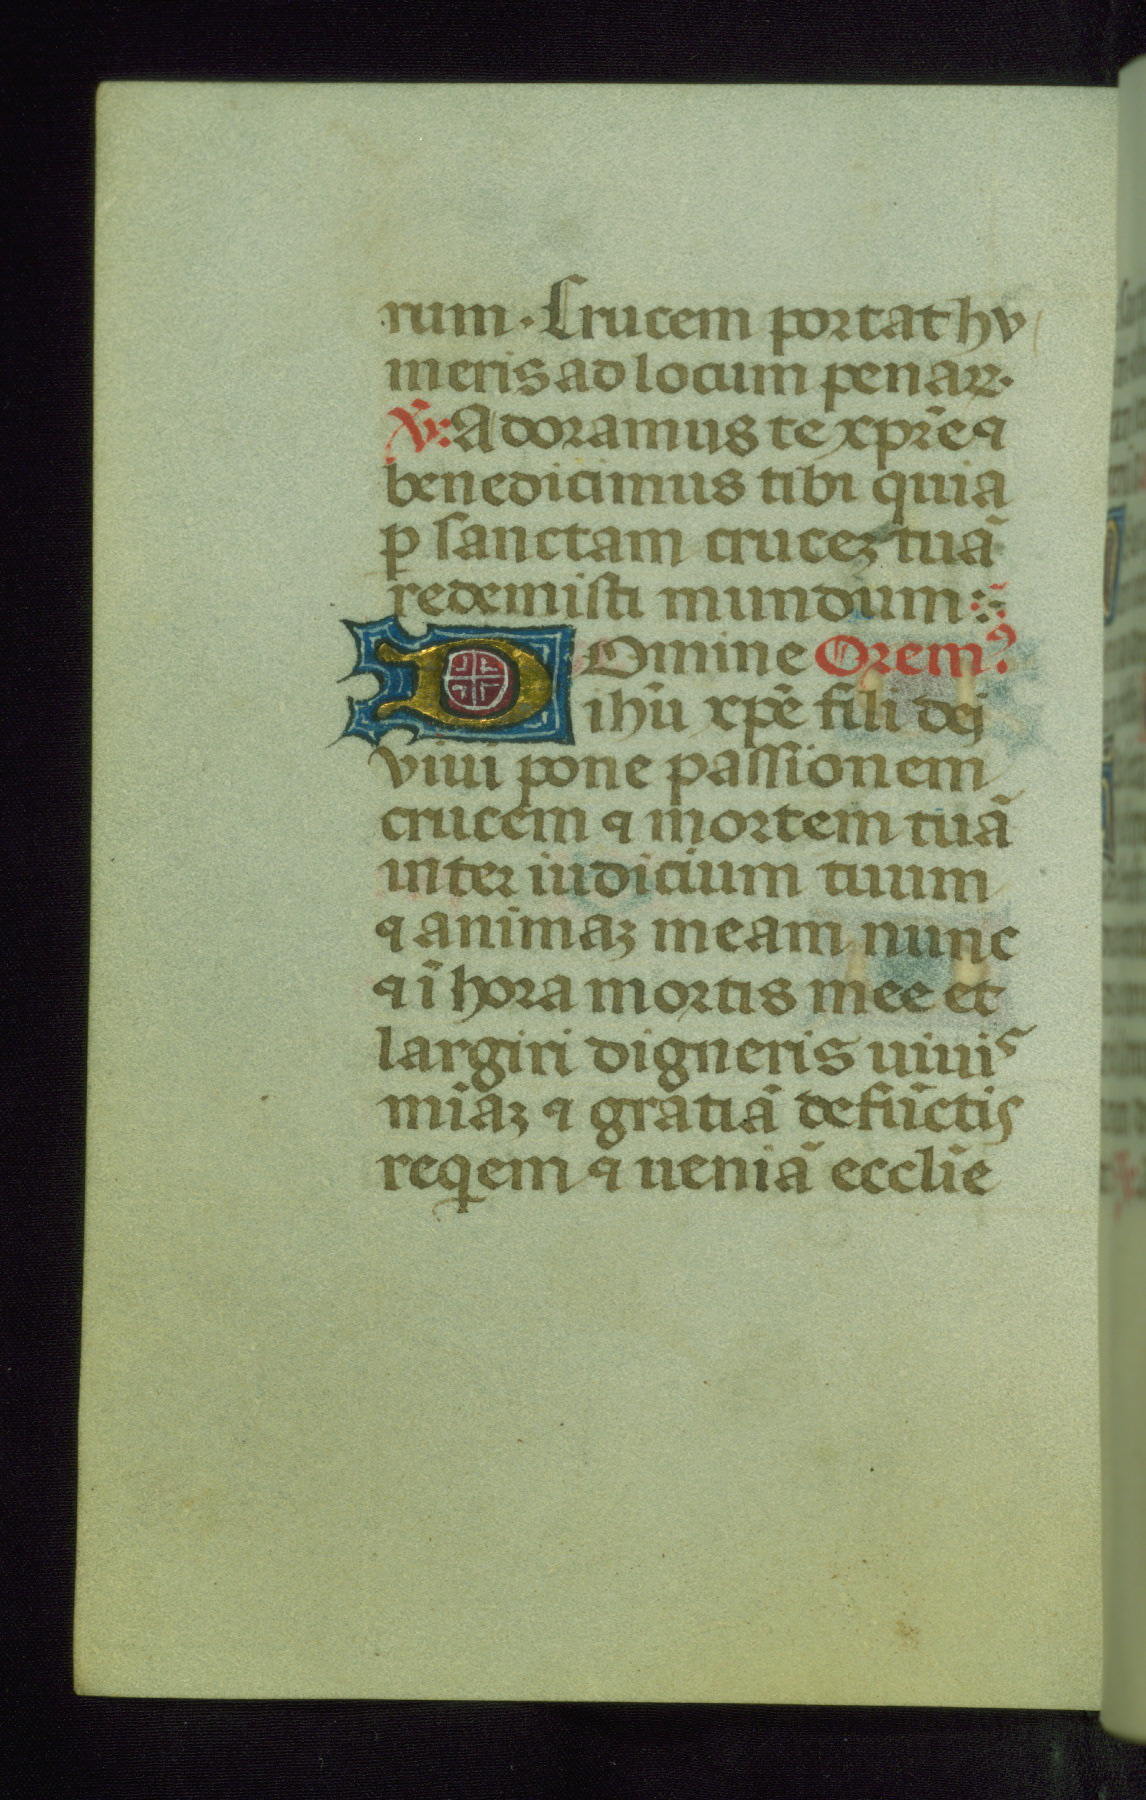 rum · Crucem portat hu
meris ad locum penarꝝ·
℣: Adoramus te xp̄r̄e ꝯ
benedicimus tibi quia
ꝑ sanctam crucez tuā
redemisti mundum:
Domine Orem⁹.
ihū xp̄e fili dei
viui pone passionem
crucem ꝯ mortem tuā
inter iudicium tuum
ꝯ animaz meam nunc
ꝯ ī hora mortis mee et
largiri digneris uiuiˢ
mīaz ꝯ gratiā defūctis
reqem ꝯ ueniā ecclīe